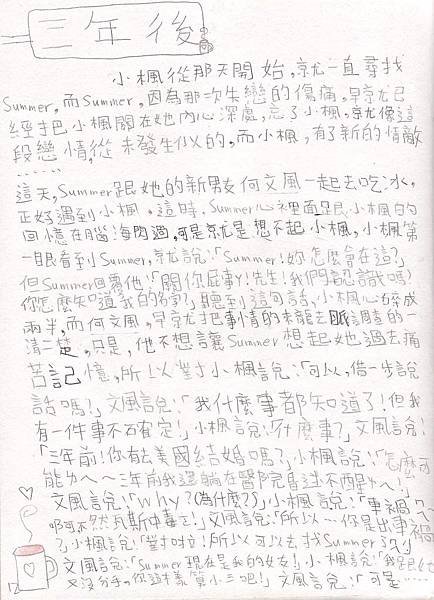 三年後
小楓從那天開始,就一直尋找
Summer,而Summer,因為那次失戀的傷痛,早就已
經把小楓關在她內心深處,忘了小楓,就像這
段戀情,從未發生似的,而小楓,有了新的情敵
……
這天,Summer跟她的新男友何文風一起去吃冰,
正好遇到小楓,這時,Summer心裡面跟小楓的
回憶在腦海內迴,可是就是想不起小楓,小楓第
一眼看到Summer,就說:「Summer!妳怎麼會在這?」
但Summer回覆他:「關你屁事Y!先生!我們認識嗎?
你怎麼知道我的名字?」聽到這句話,小楓心碎成
兩半,而何文風,早就把事情的來龍去脈調查的一
清二楚,只是,他不想讓Summer想起她過去痛
苦記憶,所以對小楓說:「可以,借一步說
話嗎?」文風說:「我什麼事都知道了!但我
有一件事不石確定!」小楓說:「什麼事?」文風說:
「三年前!你去美國結婚嗎?」小楓說:「怎麼可
能ㄌㄟ~三年前我還躺在醫院昏迷不醒ㄌㄟ!」
文風說:「Why?(為什麼?)」小楓說:「車禍ㄟ~
啊不然瓦斯中毒ㄛ!」文風說:「所以…你是出車禍
?」小楓說:「對啦!所以可以去找Summer了ㄇ?」
文風說:「Summer現在是我的女友!」小楓說:「我跟她
又沒分手,你這樣算小三吧!」文風說:「可是……
12